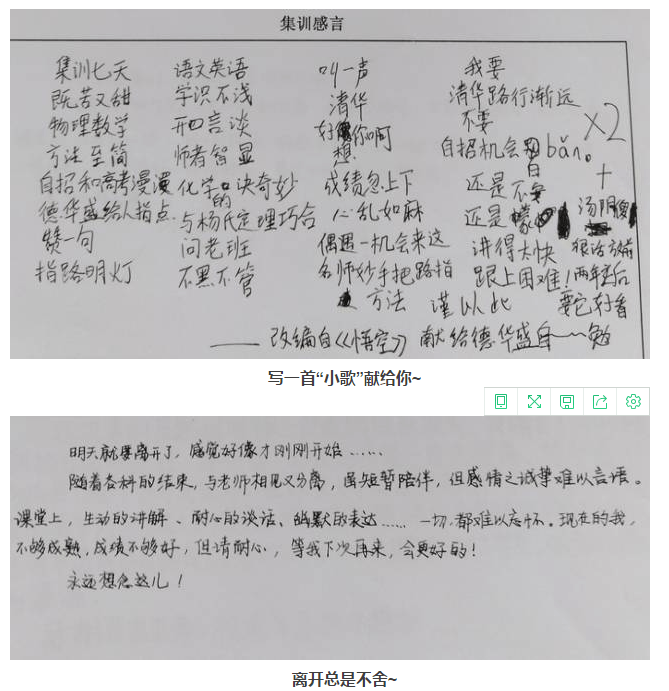 集训感言
集训七天
既苦又甜
物理数学
方法至简
自招和高考漫漫
德华盛给人指点
赞一句
指路明灯
语文英语
学识不浅
开口言谈
师者智显
化学的诀奇妙
与杨氏定理巧合
问老班
不黑不管
叫一声
清华
好想你啊
成绩忽上下
心乱如麻
偶遇一机会来这
名师妙手把路指
方法
我要
清华路行渐远
不要
自招机会白bān。
还是不
还是
讲得太快
跟上困难!
谨以此
×2
+
狠话放前
两年后
要它好看
——改编自《悟空》 献给德华盛自——勉
写一首“小歌”献给你~
明天就要离开了，感觉好像才刚刚开始……
随着各科的结束，与老师相见又分离，虽短暂陪伴，但感情之诚挚难以言语。
课堂上，生动的讲解、耐心的谈话、幽默的表达……一切，都难以忘怀。现在的我，
不够成熟，成绩不够好，但请耐心，等我下次再来，会更好的！
永远想念这儿！
离开总是不舍~